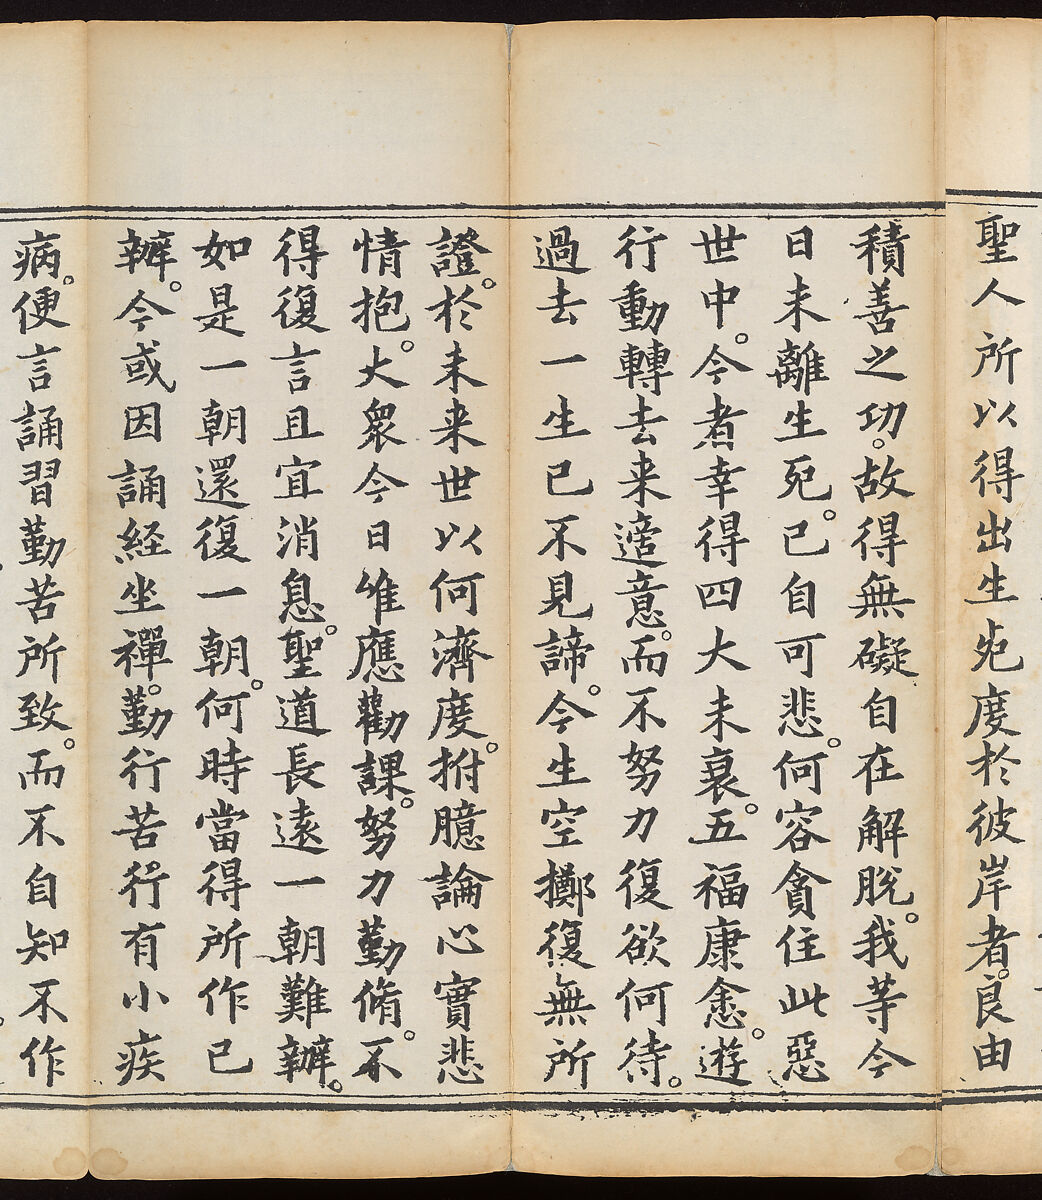 聖人所以得出生死度於彼岸者。良由
積善之功。故得無礙自在解脫。我等今
日未離生死。已自可悲。何容貪住此惡
世中。今者幸得四大未衰。五福康愈。遊
行動轉去来適意。而不努力復欲何待。
過去一生已不見諦。今生空擲復無所
證。於未来世以何濟度。拊臆論心實悲
情抱。大衆今日唯應勸課。努力勤脩。不
得復言且宜消息。聖道長遠一朝難辦。
如是一朝還復一朝。何時當得所作已
辦。今或因誦経坐禪。勤行苦行有小疾
病。便言誦習勤苦所致。而不自知不作